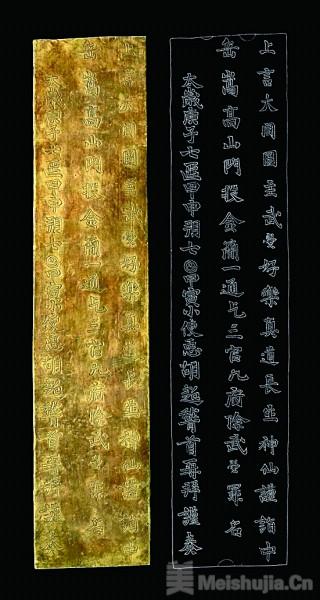 上言大周圀主武曌好樂真道長生神仙謹詣中
岳嵩高山門投金簡一通乞三官九府除武曌罪名
太歲庚子七𠥱甲申朔七𡆠甲寅小使𢘑胡超稽首再拜謹奏
Meishujia.Cn